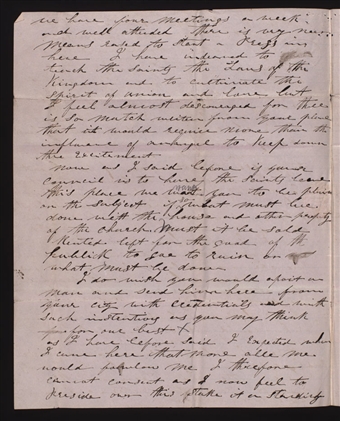 we have four meetings a week
and well attended there is very near
means Raised to Start a Press in
here I have in to
teach the Saints the Laws of the
Kingdom and to cultivate the
Spirit of union and Love but
I feel almost descouraged for there
is so match writen from your place
that it would require more than the
influence of to keep down
the Excitement
now as I Said before if your
Council is to have the Saints leave
this place we want you to be plain
on the Subject if what must be
done with the house and other property
of the church must it be Sold
Rented left for the good of the
Publick to Go to Ruin or
what must be done
I do wish you would apoint a
man and send him here from
your city with Credentials and with
Such instructions as you may think
proper one best
as I have before Said I Expected when
I came here that more able me
would follow me I therefore
cannot consent as I now feel to
Preside over this Stake it is Standing